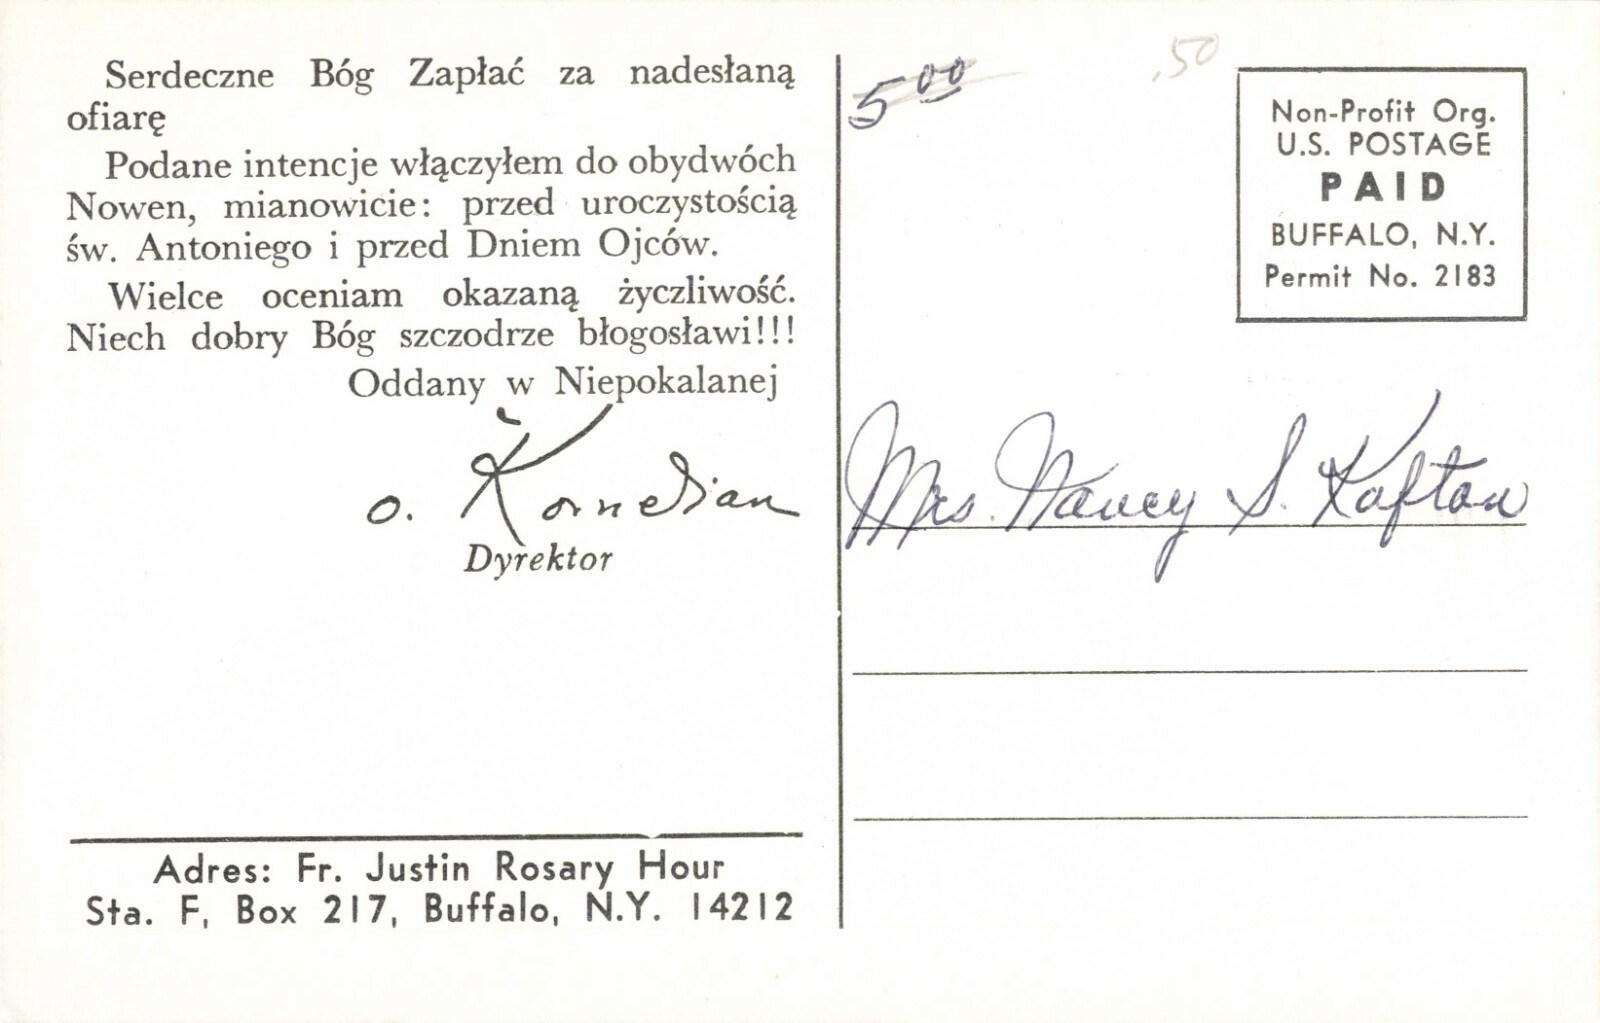 Serdeczne Bóg Zapłać za nadesłaną
ofiarę
Podane intencje włączyłem do obydwóch
Nowen, mianowicie: przed uroczystością
św. Antoniego i przed Dniem Ojców.
Wielce oceniam okazaną życzliwość.
Niech dobry Bóg szczodrze błogosławi!!!
Oddany w Niepokalanej
o. Kornelian
Dyrektor
Adres: Fr. Justin Rosary Hour
Sta. F, Box 217, Buffalo, N.Y. 14212
5 00
.50
Non-Profit Org.
U.S. POSTAGE
PAID
BUFFALO, N.Y.
Permit No. 2183
Mrs. Nancy S. Kaftan